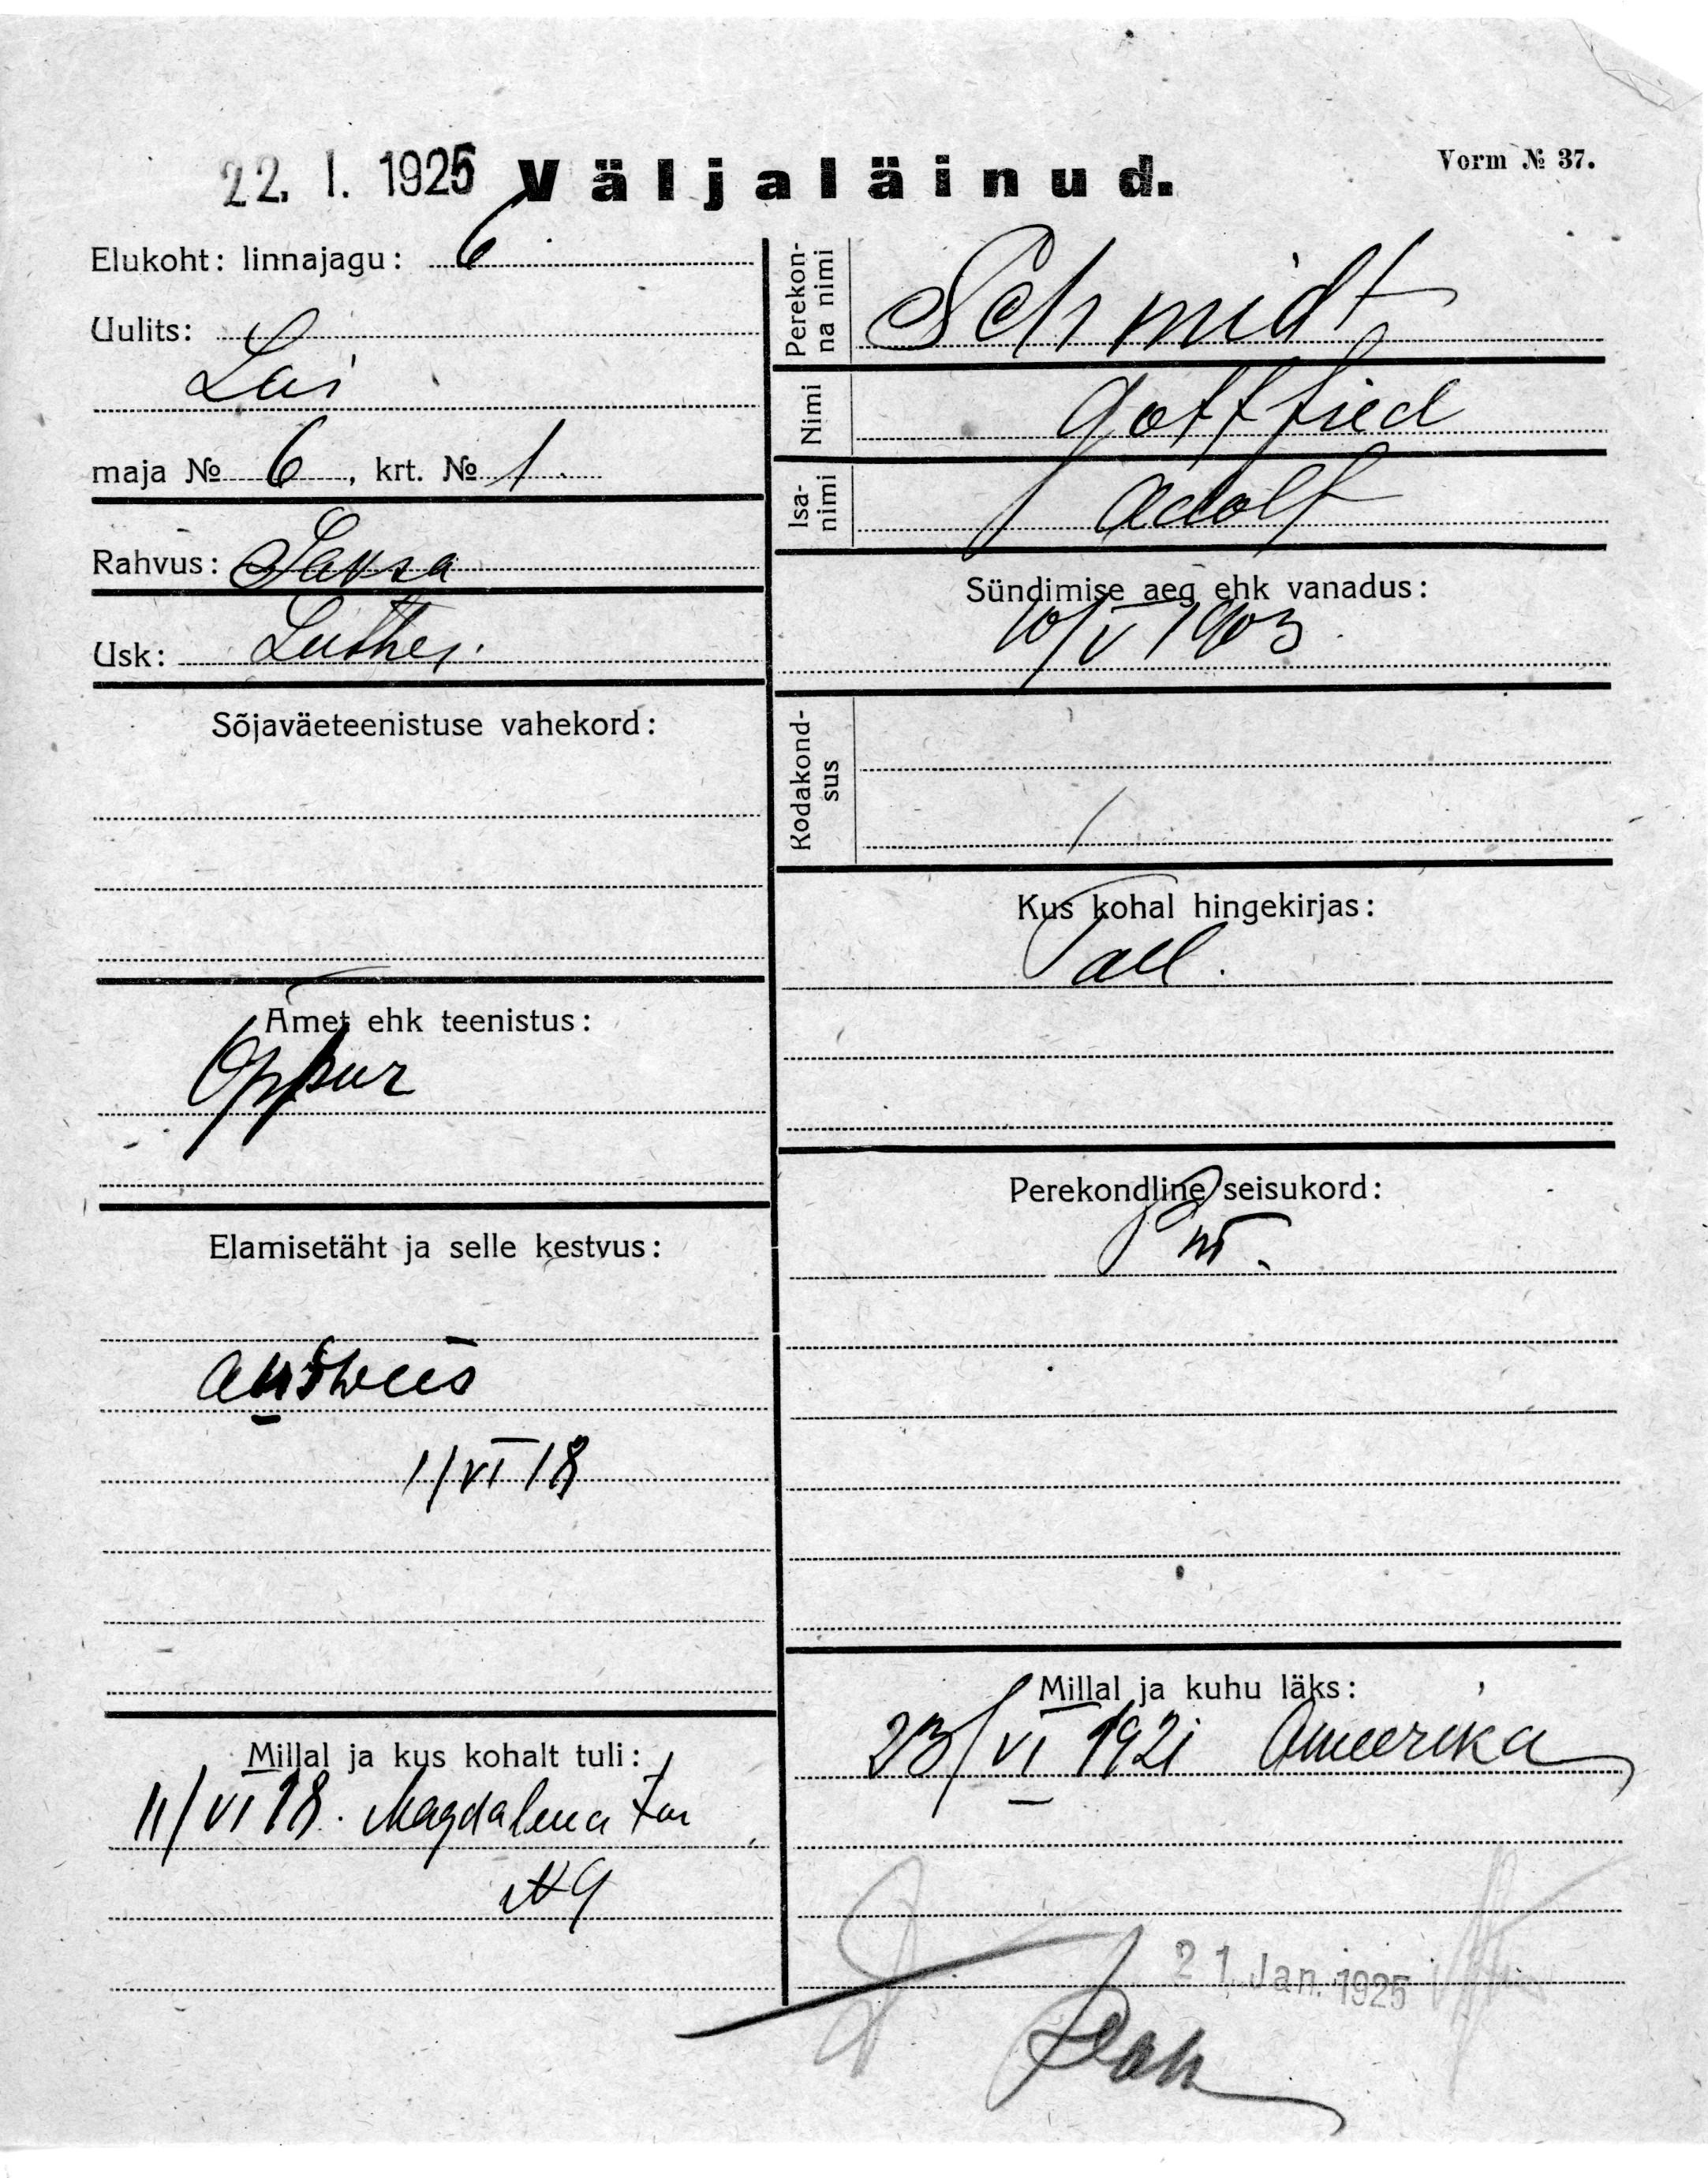 22. I. 1925 Väljaläinud.
Vorm № 37.
Elukoht: linnajagu: 6
Uulits:
Lai
maja № 6, krt. № 1.
Rahvus: Saksa
Usk: Luther.
Sõjaväeteenistuse vahekord:
Amet ehk teenistus:
Õppur
Elamisetäht ja selle kestvus:
Ausweis
11/VI 18
Millal ja kus kohalt tuli:
11/VI 18. Magdalena tän
N 9
Perekonna nimi
Schmidt
Nimi
Gottfried
Isanimi
Adolf
Sündimise aeg ehk vanadus:
10/V 1903
Kodakondsus
Kus kohal hingekirjas:
Tall.
Perekondline seisukord:
Millal ja kuhu läks:
23/VI 1921 Ameerika
21. Jan. 1925